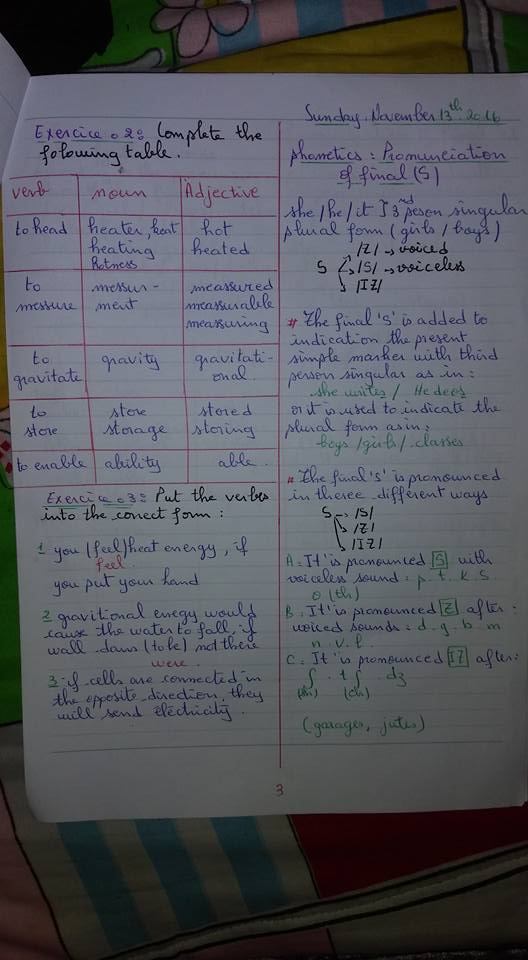 Exercice 02: Complete the
folowing table.
verb noun Adjective
to head heater, heat hot
heating heated
hotness
to messur- meassured
messure ment meassurable
meassuring
to gravity gravitati-
gravitate onal
to store stored
store storage storing
to enable ability able
Exercice 03: Put the verbes
into the corect form:
1 you (feel) heat energy, if
feel
you put your hand
2 gravitional enegy would
cause the water to fall, if
wall dams (to be) not there
were
3 if cells are connected in
the opposite direction, they
will send electricity.
Sunday, November 13th 2016
phonetics: Pronunciation
of final (S)
she / he / it 3rd peson singular
plural form (girls / boys)
/Z/ → voiced
S /S/ → voiceless
/IZ/
# The final 's' is added to
indication the present
simple marker with third
person singular as in:
she writes / He does
or it is used to indicate the
plural form as in:
boys / girls / classes
# The final 's' is pronounced
in theree different ways
S → /S/
/Z/
/IZ/
A: It's pronounced [S] with
voiceless sound: p. t. k. S.
θ (th)
B: It's pronounced [Z] after:
voiced sounds: d. g. b. m
n. v. l.
C: It's pronounced [IZ] after:
ʃ . tʃ . dʒ
(sh) (ch)
(garages, jutes)
3